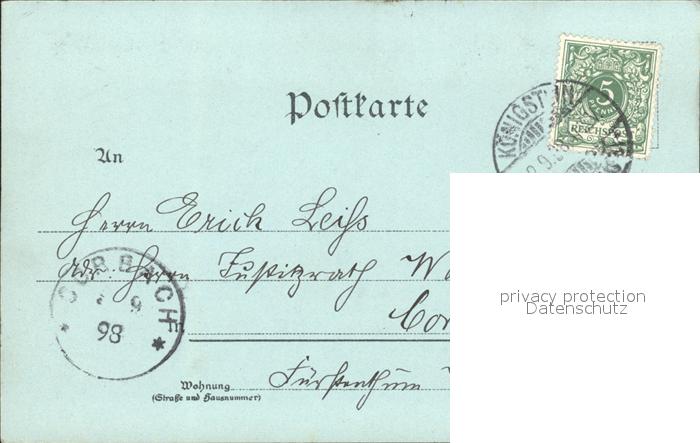 Postkarte
5
REICHSPOST
KÖNIGSTEIN
9.98
An
Herrn Erich Leiss
Adr. Herrn Justizrath
CORBACH
9
98
In
Cor
Fürstenthum
Wohnung
(Straße und Hausnummer)
privacy protection
Datenschutz